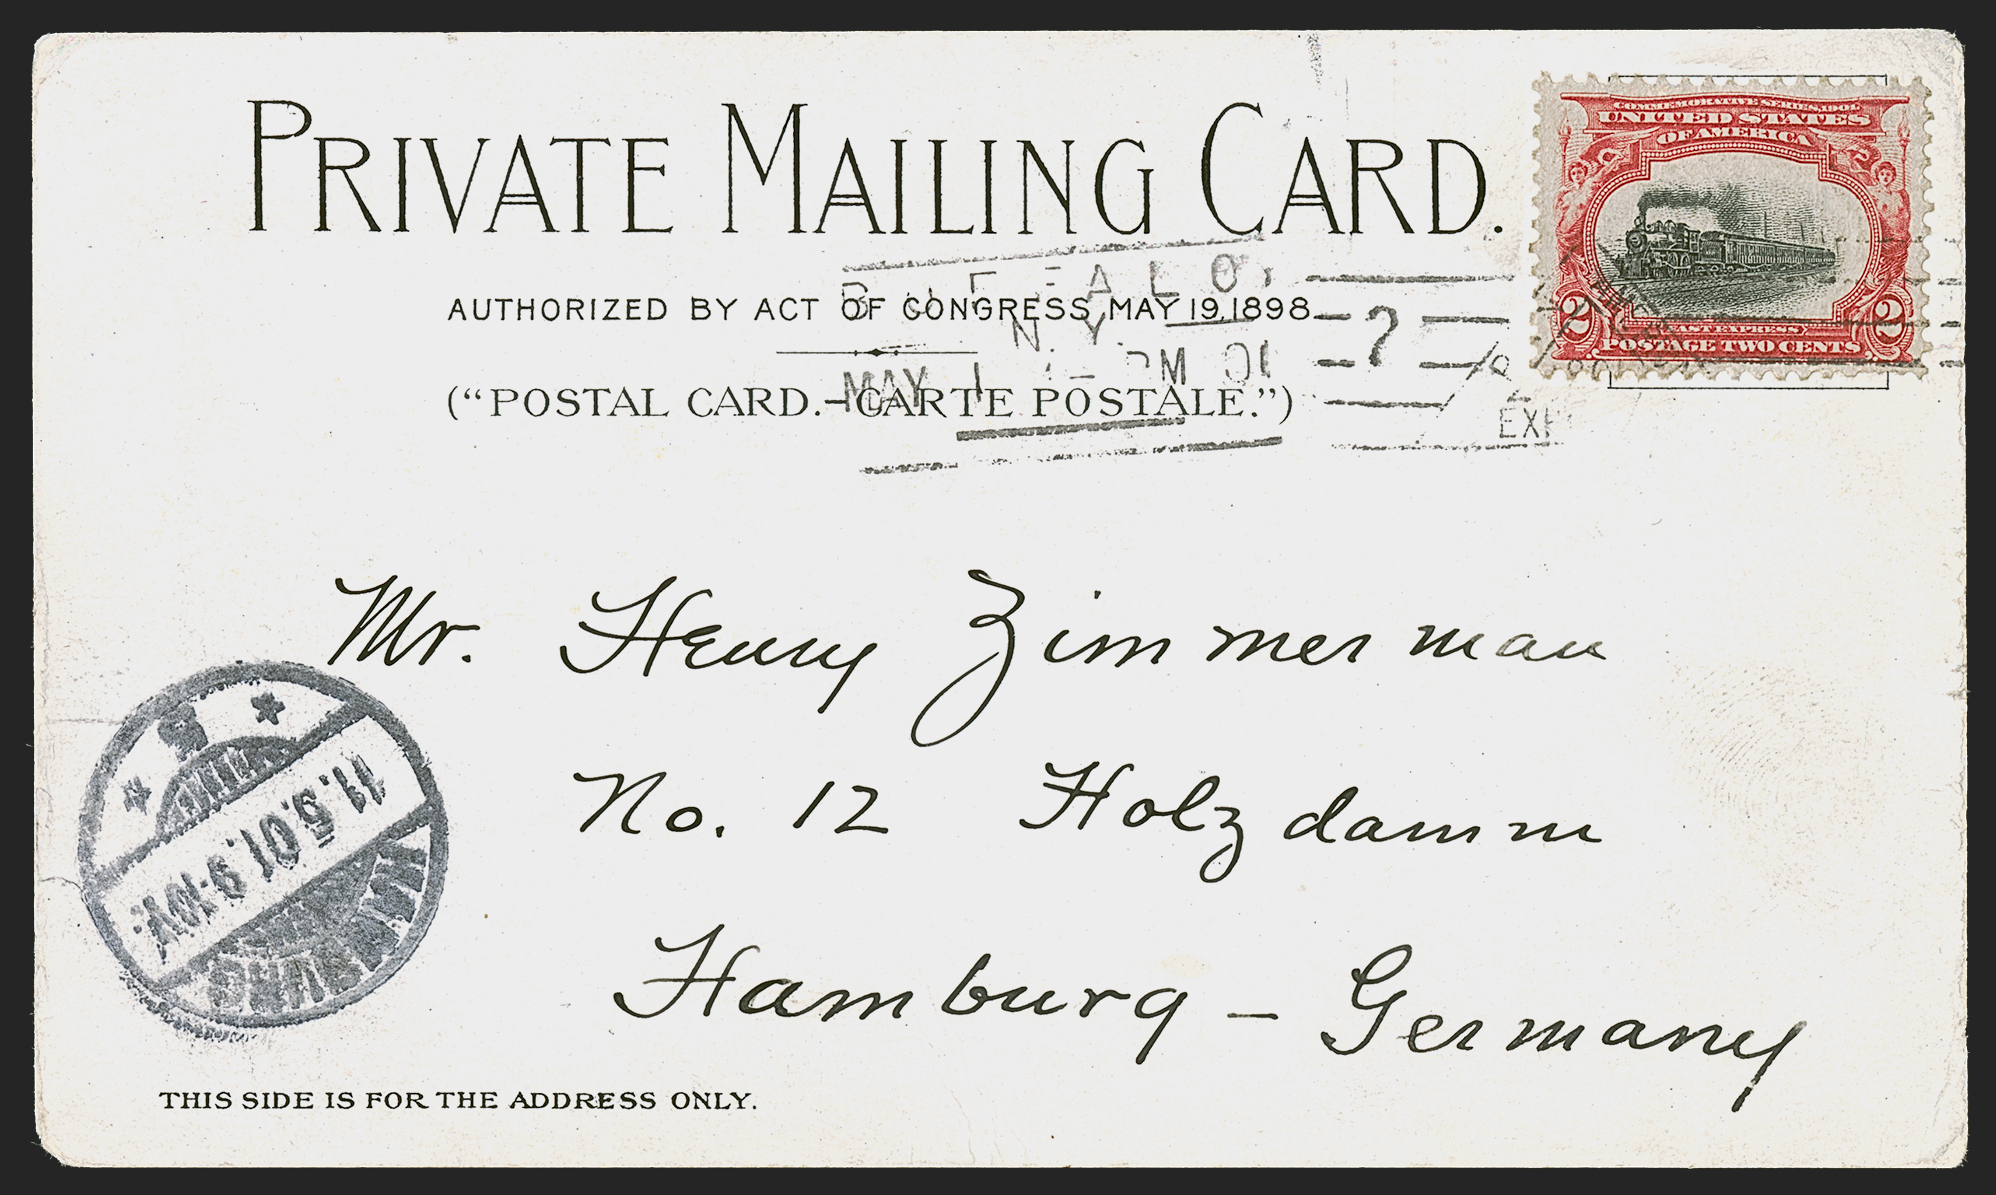 PRIVATE MAILING CARD.
COMMEMORATIVE SERIES, 1901.
UNITED STATES
OF AMERICA
FAST EXPRESS
2 2
POSTAGE TWO CENTS
BUFFALO
N.Y.
MAY 1 PM 01
AUTHORIZED BY ACT OF CONGRESS MAY 19, 1898
("POSTAL CARD.—CARTE POSTALE.")
Mr. Henry Zimmerman
No. 12 Holzdamm
Hamburg – Germany
HAMBURG
11.5.01. 9-10V.
THIS SIDE IS FOR THE ADDRESS ONLY.